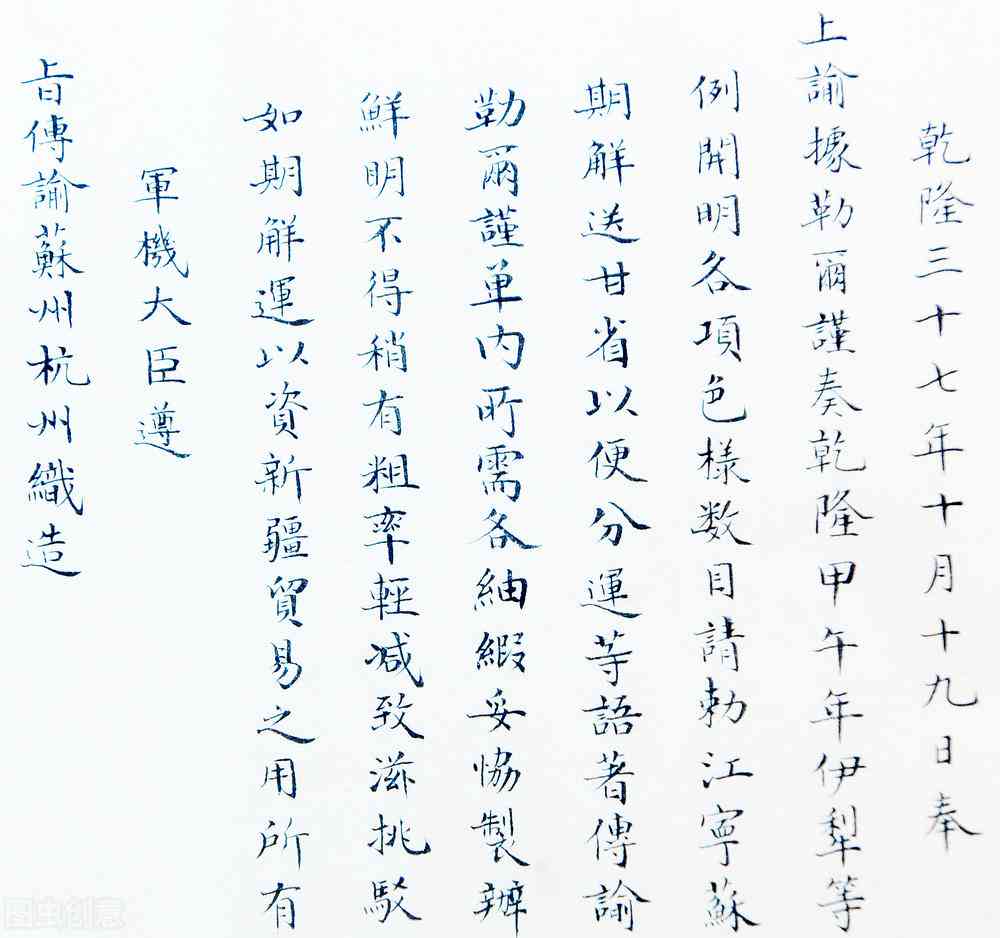 乾隆三十七年十月十九日奉
上諭據勒爾謹奏乾隆甲午年伊犁等
例開明各項色樣数目請勅江寧蘇
期解送甘省以便分運等語著傳諭
勒爾謹单内所需各紬緞妥恊製辦
鮮明不得稍有粗率輕减致滋挑駁
如期解運以資新疆貿易之用所有
軍機大臣遵
旨傳諭蘇州杭州織造
图虫创意